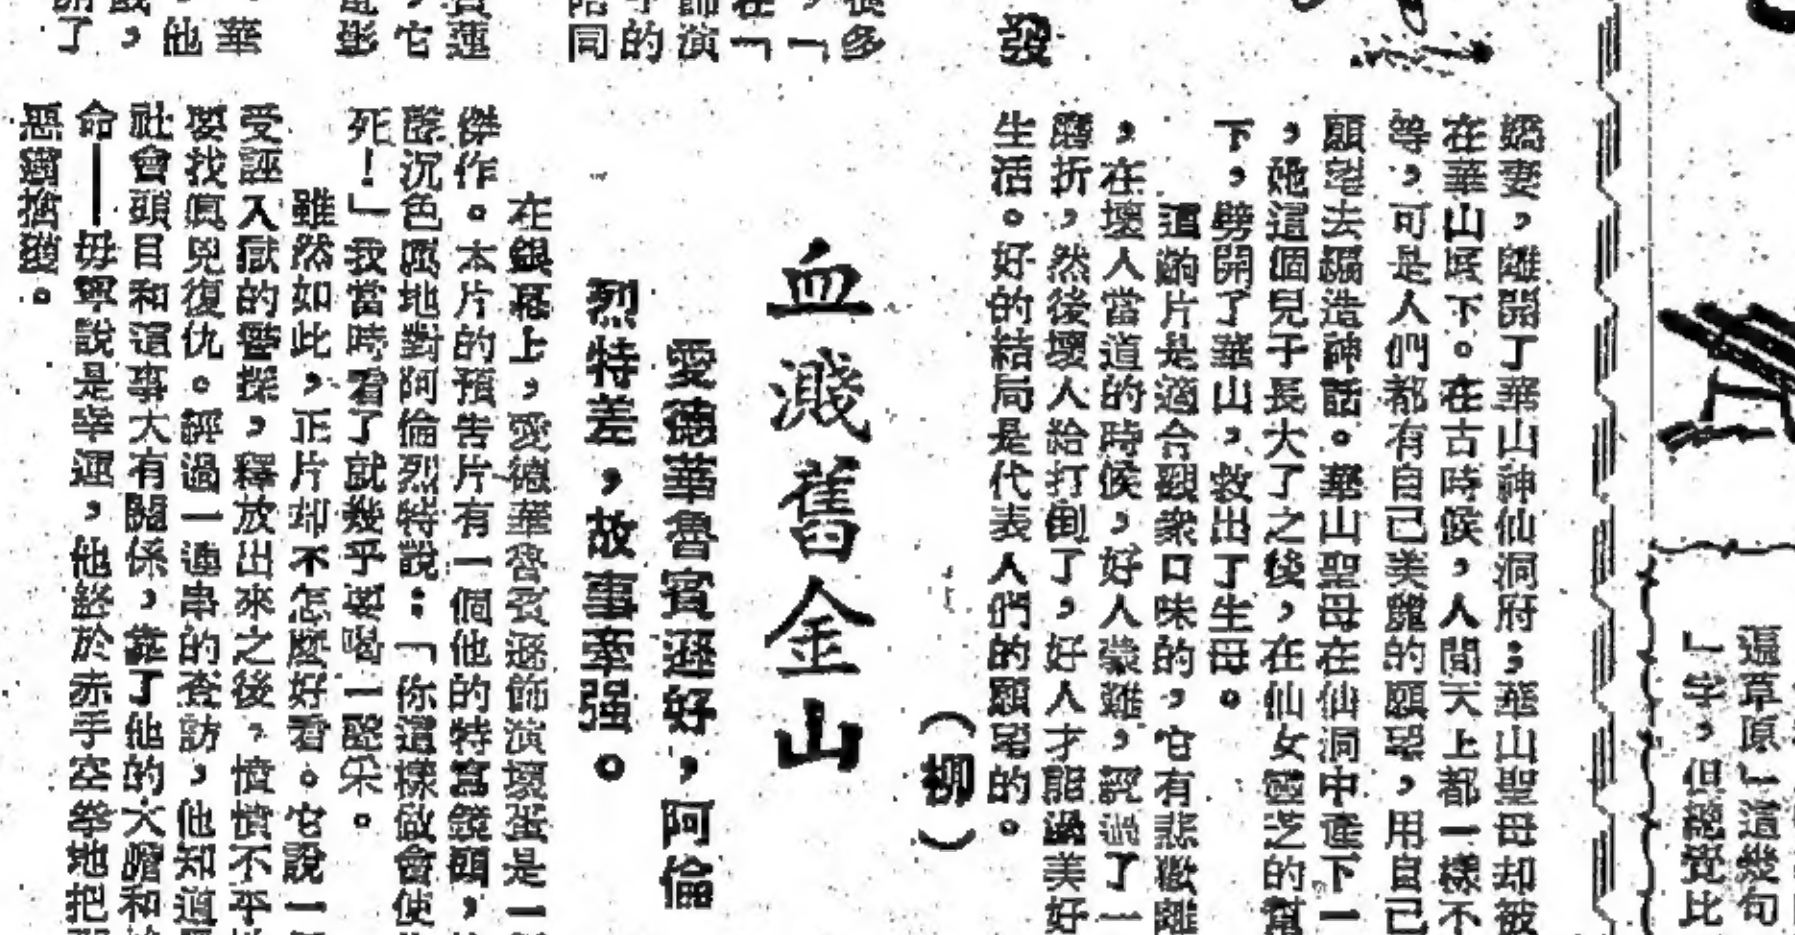 發
嬌妻，離開了華山神仙洞府；華山聖母却被
在華山底下。在古時候，人間天上都一樣不
等，可是人們都有自己美麗的願望，用自己
願望去編造神話。華山聖母在仙洞中產下一
，她這個兒子長大了之後，在仙女靈芝的幫
下，劈開了華山，救出了生母。
這齣片是適合觀衆口味的，它有悲歡離
，在壞人當道的時候，好人蒙難，經過了一
磨折，然後壞人給打倒了，好人才能過美好
生活。好的結局是代表人們的願望的。
（柳）
血濺舊金山
愛德華魯賓遜好，阿倫
烈特差，故事牽强。
在銀幕上，愛德華魯賓遜飾演壞蛋是一
傑作。本片的預告片有一個他的特寫鏡頭，
沉色厲地對阿倫烈特說：「你這樣做會使
死！」我當時看了就幾乎要喝一聲采。
雖然如此，正片却不怎麼好看。它說一
受誣入獄的警探，釋放出來之後，憤憤不平
要找眞兇復仇。經過一連串的查訪，他知道
社會頭目和這事大有關係，靠了他的大膽和
命——毋寧說是幸運，他終於赤手空拳地把
惡
多
演
的
同
蓮
它
影
華
他
，
了
遍草原」這幾句
」字，但總覺比